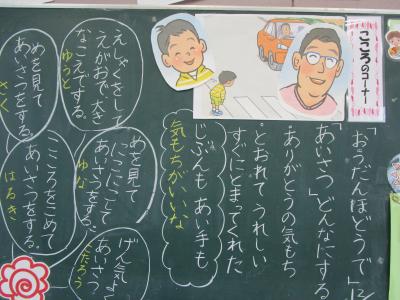 こころのコーナー
「おうだんほどうで」
「あいさつ」どんなにする
ありがとうの気もち
とおれて うれしい
すぐにとまってくれた
じぶんも あい手も
気もちがいいな
えしゃくをして
えがおで、大き
なこえでする。
ゆうと
めを見て
にっこにこして
あいさつをする。
ゆな
げん気よく
あいさつ
こたろう
めを見て
あいさつをする。
さく
こころをこめて
あいさつをする。
はるき